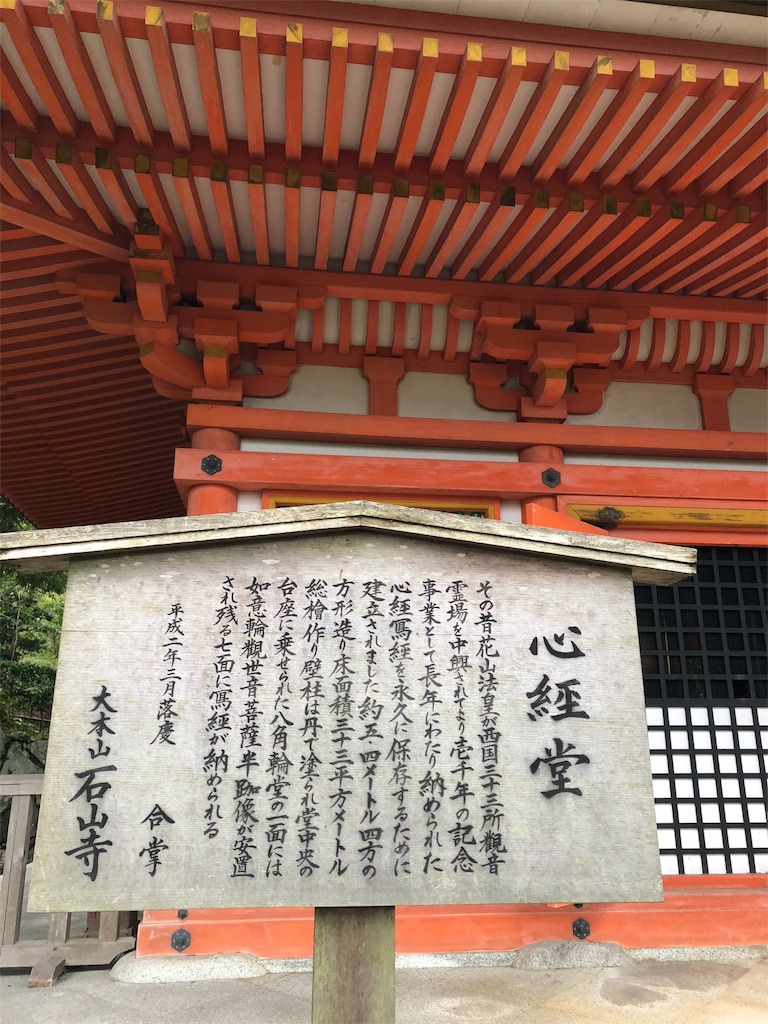 心經堂
その昔花山法皇が西国三十三所觀音
霊場を中興されてより壱千年の記念
事業として長年にわたり納められた
心經寫經を永久に保存するために
建立されました約五・四メートル四方の
方形造り床面積三十三平方メートル
総檜作り壁柱は丹で塗られ堂中央の
台座に乗せられた八角輪堂の一面には
如意輪觀世音菩薩半跏像が安置
され残る七面に寫經が納められる
平成二年三月落慶
合掌
大本山石山寺